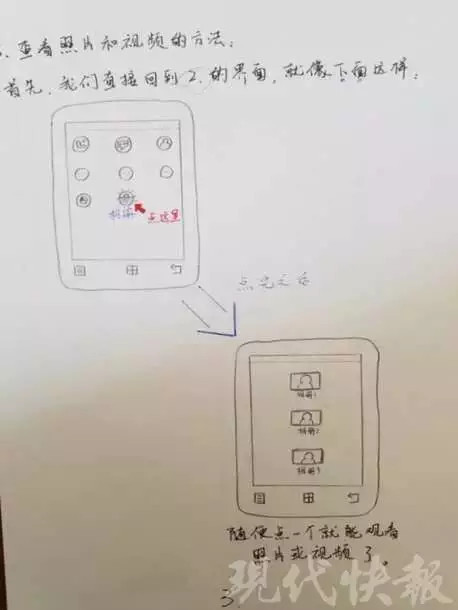 查看照片和视频的方法：
首先，我们直接回到2.的界面，就像下面这样：
相册
点这里
点完之后
相册1
相册2
相册3
随便点一个就能观看
照片或视频了。
3.
现代快报